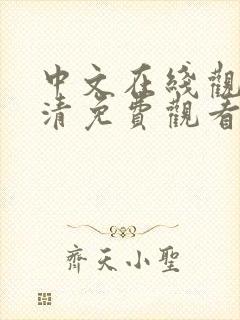 中文在綫觀
清免費觀看
齊天小聖